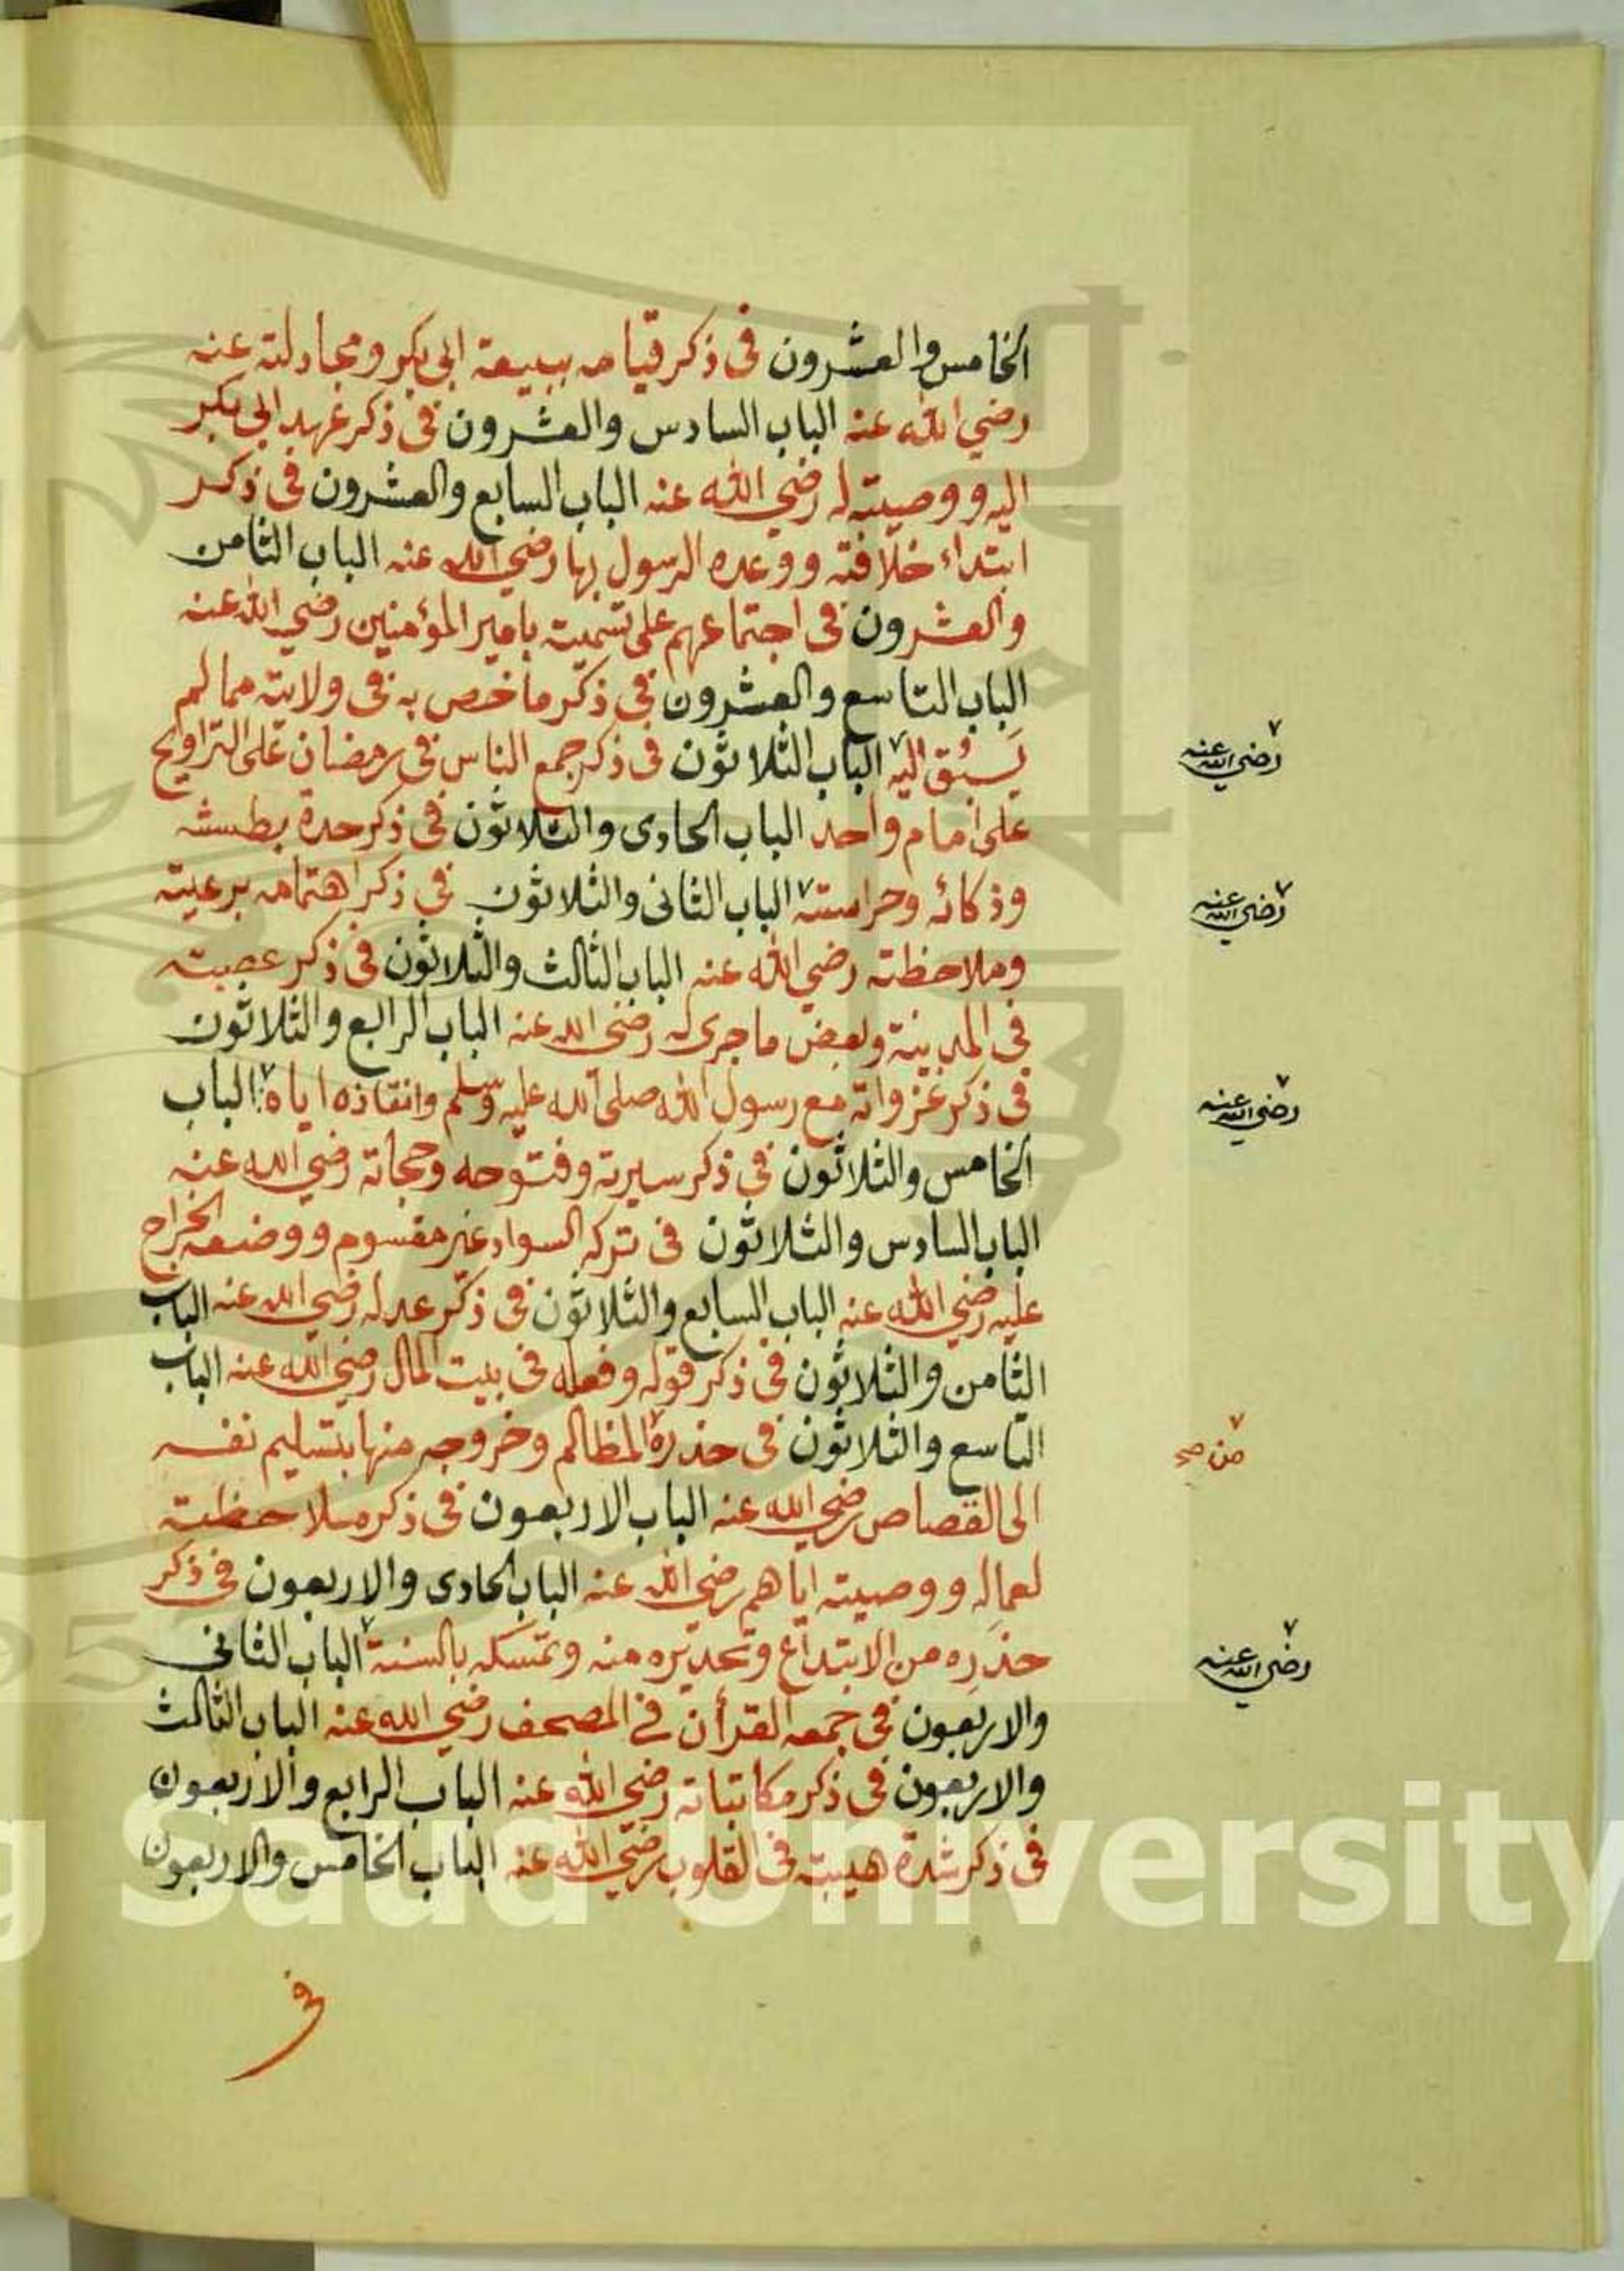 الخامس والعشرون فى ذكر قيامه ببيعة ابى بكر ومجادلته عنه
رضي الله عنه الباب السادس والعشرون فى ذكر عهد ابى بكر
اليه ووصيته له رضي الله عنه الباب السابع والعشرون فى ذكر
ابتداء خلافته ووعده الرسول بها رضي الله عنه الباب الثامن
والعشرون فى اجتماعهم على تسميته بامير المؤمنين رضي الله عنه
الباب التاسع والعشرون فى ذكر ما خص به فى ولايته مما لم
يسبق اليه ٧ الباب الثلاثون فى ذكر جمع الناس فى رمضان على التراويح
٧ رضي الله عنه
على امام واحد الباب الحادى والثلاثون فى ذكر حدة بطشه
وذكائه وحراسته ٧ الباب الثانى والثلاثون فى ذكر اهتمامه برعيته
٧ رضي الله عنه
وملاحظته رضي الله عنه الباب الثالث والثلاثون فى ذكر عصبته
فى المدينة وبعض ما جرى له رضي الله عنه الباب الرابع والثلاثون
فى ذكر غزواته مع رسول الله صلى الله عليه وسلم وانفاذه اياه ٧ الباب
٧ رضي الله عنه
الخامس والثلاثون فى ذكر سيرته وفتوحه وحجاته رضي الله عنه
الباب السادس والثلاثون فى تركه السواد غير مقسوم ووضعه الخراج
عليه رضي الله عنه الباب السابع والثلاثون فى ذكر عدله رضي الله عنه الباب
الثامن والثلاثون فى ذكر قوله وفعله فى بيت المال رضي الله عنه الباب
التاسع والثلاثون فى حذره ٧ المظالم وخروجه منها بتسليم نفسه
٧ من صح
الى القصاص رضي الله عنه الباب الاربعون فى ذكر ملاحظته
لعماله ووصيته اياهم رضي الله عنه الباب الحادى والاربعون فى ذكر
حذره من الابتداع وتحذيره منه وتمسكه بالسنة ٧ الباب الثانى
٧ رضي الله عنه
والاربعون فى جمعه القرأن في المصحف رضي الله عنه الباب الثالث
والاربعون فى ذكر مكاتباته رضي الله عنه الباب الرابع والاربعون
فى ذكر شدة هيبته فى القلوب رضي الله عنه الباب الخامس والاربعون
فى
g Saud University